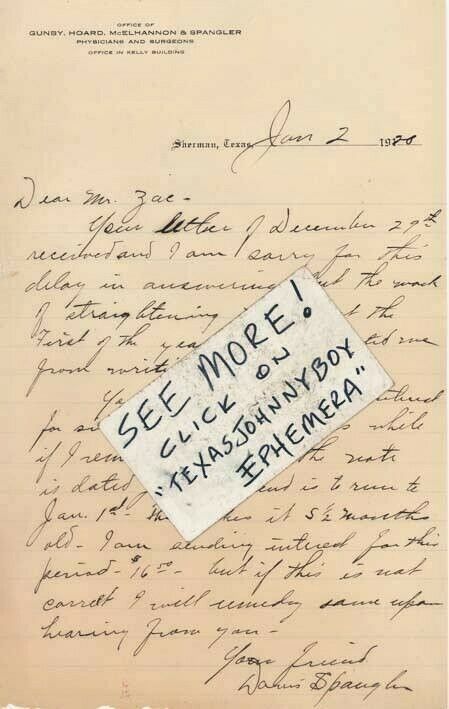 OFFICE OF
GUNBY, HOARD, McELHANNON & SPANGLER
PHYSICIANS AND SURGEONS
OFFICE IN KELLY BUILDING
Sherman, Texas, Jan 2 1920
Dear Mr. Zac -
Your letter of December 29th
received and I am sorry for this
delay in answering but the work
of straightening the
First of the
from
for
if I while
is dated and is to run to
Jan. 1st - it 5 1/2 months
old - I am sending interest for this
period - $16.50 - but if this is not
correct I will remedy same upon
hearing from you -
Your friend
Davis Spangler
SEE MORE!
CLICK ON
"TEXASJOHNNYBOY
EPHEMERA"